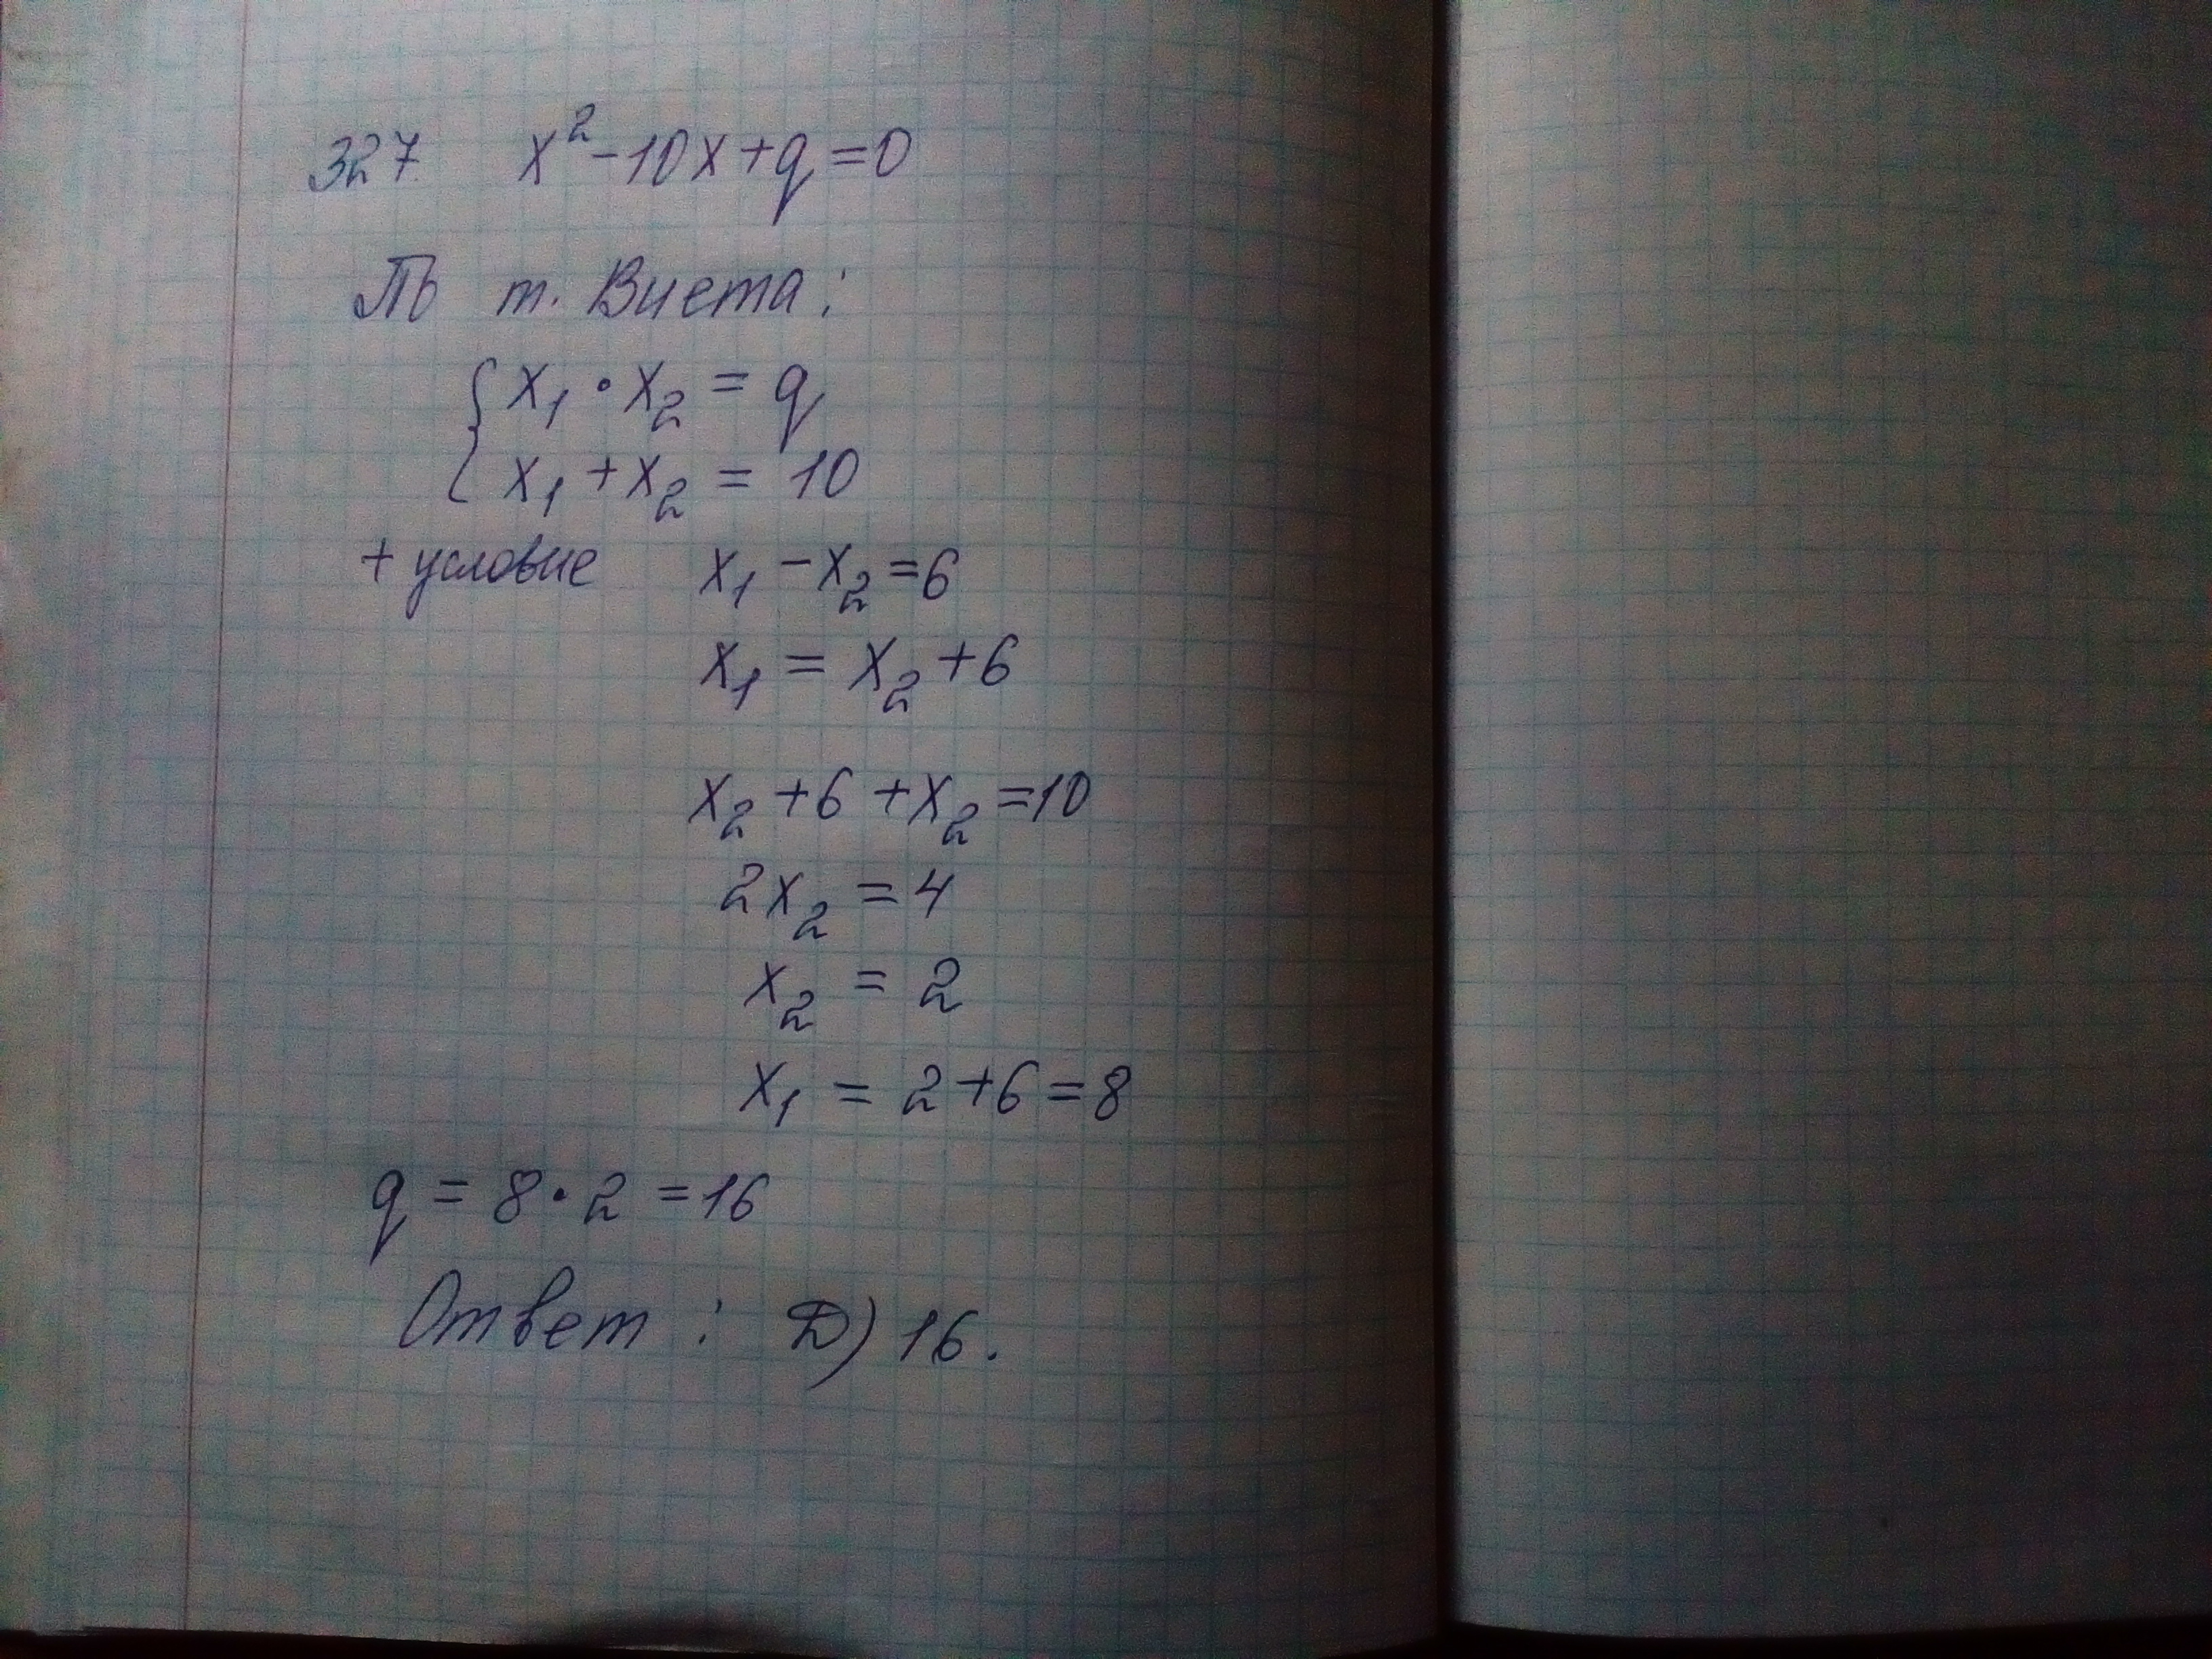 327. x² - 10x + q = 0
По т. Виета:
{ x₁ • x₂ = q
x₁ + x₂ = 10
+ условие x₁ - x₂ = 6
x₁ = x₂ + 6
x₂ + 6 + x₂ = 10
2x₂ = 4
x₂ = 2
x₁ = 2 + 6 = 8
q = 8 • 2 = 16
Ответ: D) 16.